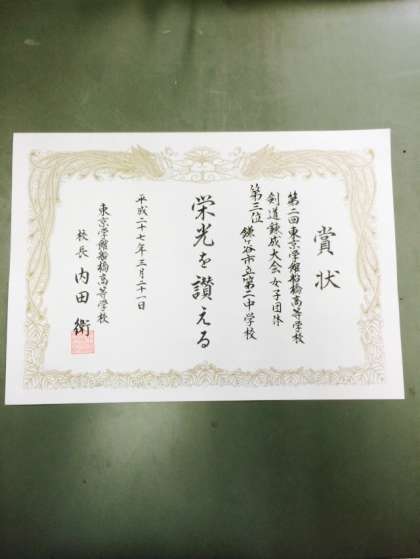 賞状
第二回東京学館船橋高等学校
剣道錬成大会 女子団体
第三位 鎌ヶ谷市立第二中学校
栄光を讃える
平成二十七年三月二十一日
東京学館船橋高等学校
校長 内田 衛